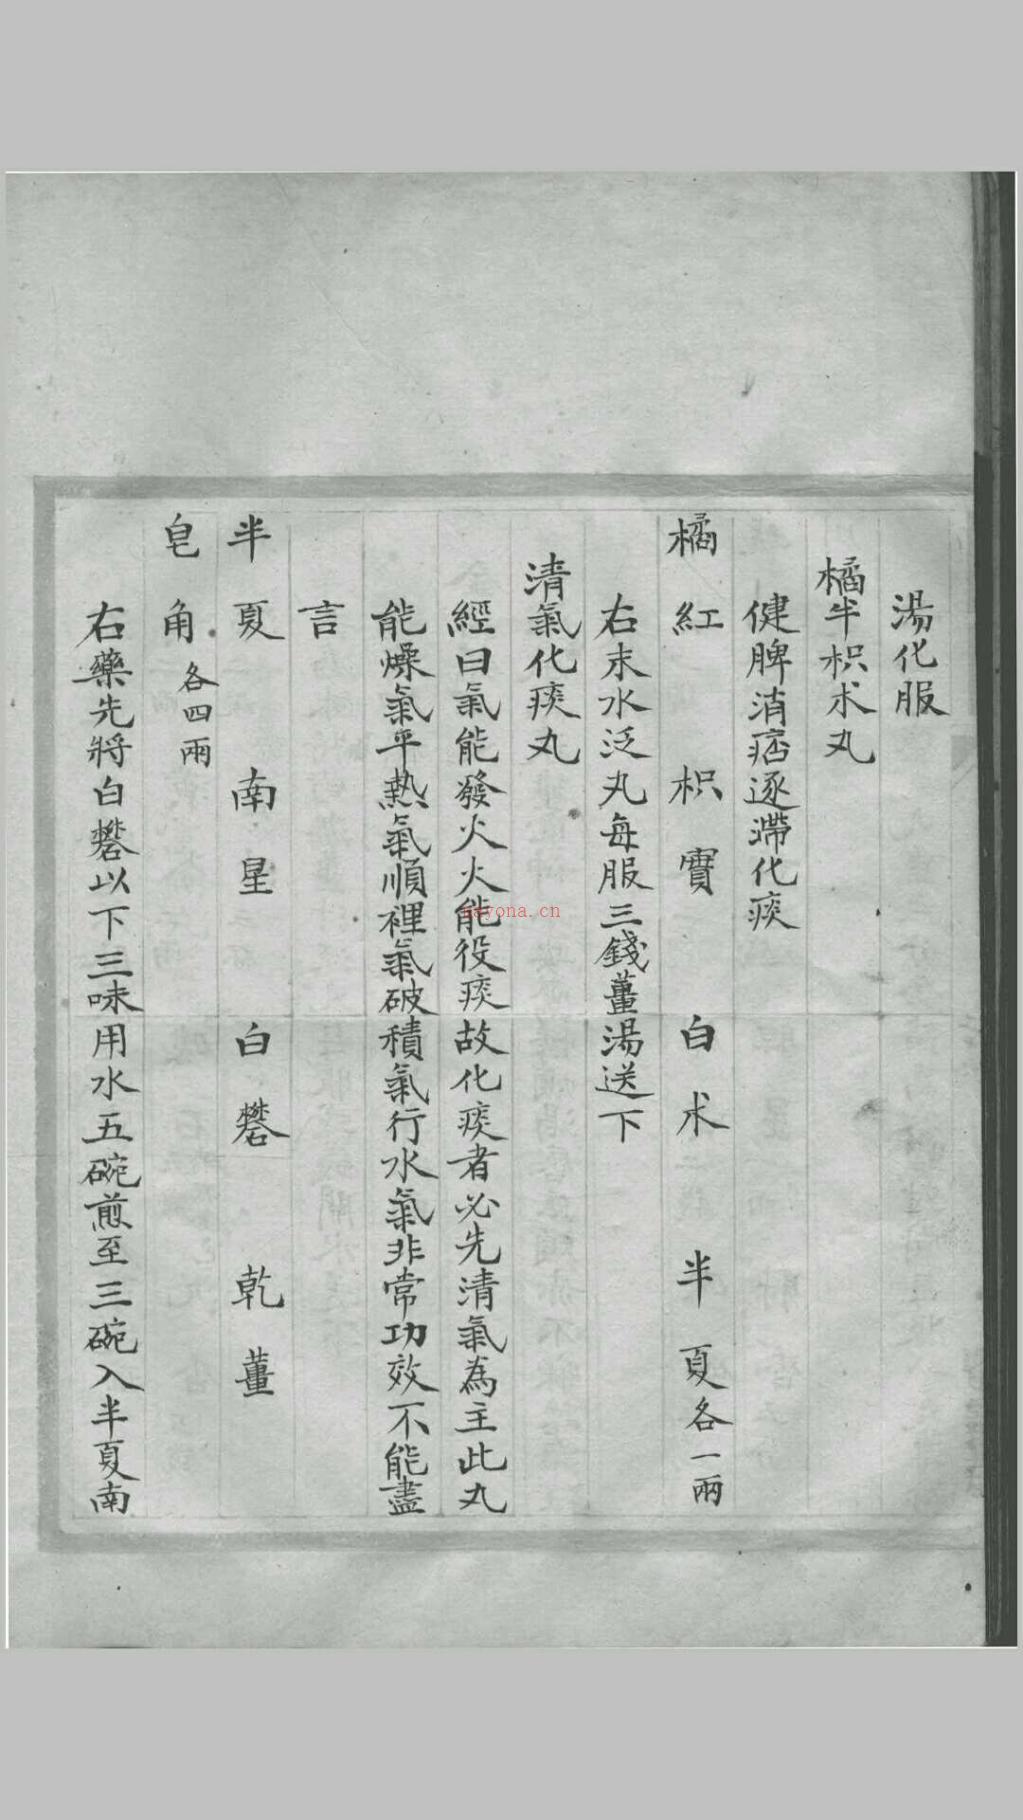 湯化服
橘半枳术丸
健脾消痞逐滯化痰
橘紅 枳實 白术 半夏各一兩
右末水泛丸每服三錢薑湯送下
清氣化痰丸
經曰氣能發火火能役痰故化痰者必先清氣為主此丸
能燥氣平熱氣順裡氣破積氣行水氣非常功效不能盡
言
半夏 南星 白礬 乾薑
皂角各四兩
右藥先將白礬以下三味用水五碗煎至三碗入半夏南
nayona.cn